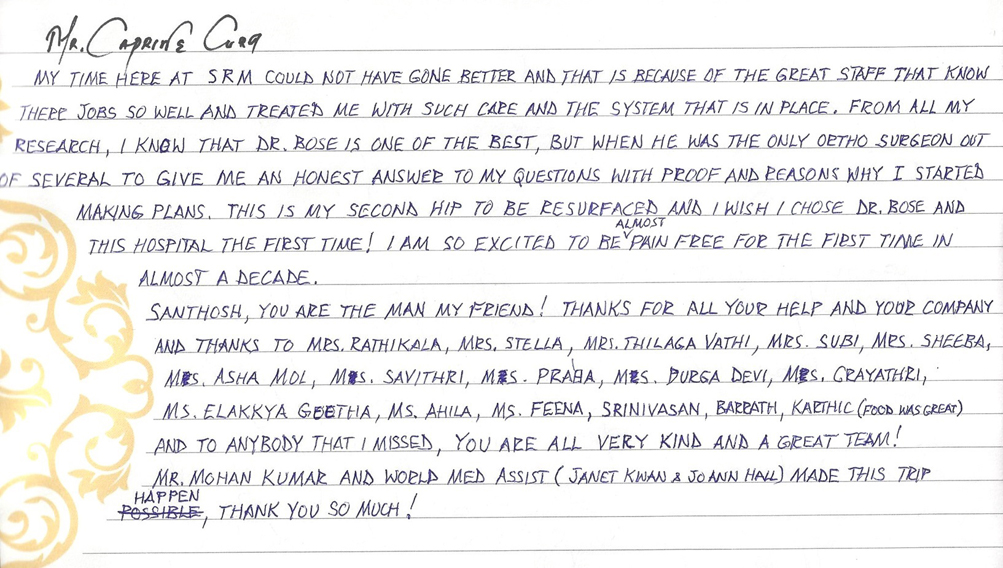 Mr.
MY TIME HERE AT SRM COULD NOT HAVE GONE BETTER AND THAT IS BECAUSE OF THE GREAT STAFF THAT KNOW
THERE JOBS SO WELL AND TREATED ME WITH SUCH CARE AND THE SYSTEM THAT IS IN PLACE. FROM ALL MY
RESEARCH, I KNOW THAT DR. BOSE IS ONE OF THE BEST, BUT WHEN HE WAS THE ONLY ORTHO SURGEON OUT
OF SEVERAL TO GIVE ME AN HONEST ANSWER TO MY QUESTIONS WITH PROOF AND REASONS WHY I STARTED
MAKING PLANS. THIS IS MY SECOND HIP TO BE RESURFACED AND I WISH I CHOSE DR. BOSE AND
THIS HOSPITAL THE FIRST TIME! I AM SO EXCITED TO BE ALMOST PAIN FREE FOR THE FIRST TIME IN
ALMOST A DECADE.
SANTHOSH, YOU ARE THE MAN MY FRIEND! THANKS FOR ALL YOUR HELP AND YOUR COMPANY
AND THANKS TO MRS. RATHIKALA, MRS. STELLA, MRS. THILAGA VATHI, MRS. SUBI, MRS. SHEEBA,
MS. ASHA MOL, MS. SAVITHRI, MS. PRABA, MS. DURGA DEVI, MS. GRAYATHRI,
MS. ELAKKYA GEETHA, MS. AHILA, MS. FEENA, SRINIVASAN, BARRATH, KARTHIC (FOOD WAS GREAT)
AND TO ANYBODY THAT I MISSED, YOU ARE ALL VERY KIND AND A GREAT TEAM!
MR. MOHAN KUMAR AND WORLD MED ASSIST (JANET KWAN & JO ANN HALL) MADE THIS TRIP
HAPPEN
POSSIBLE, THANK YOU SO MUCH!